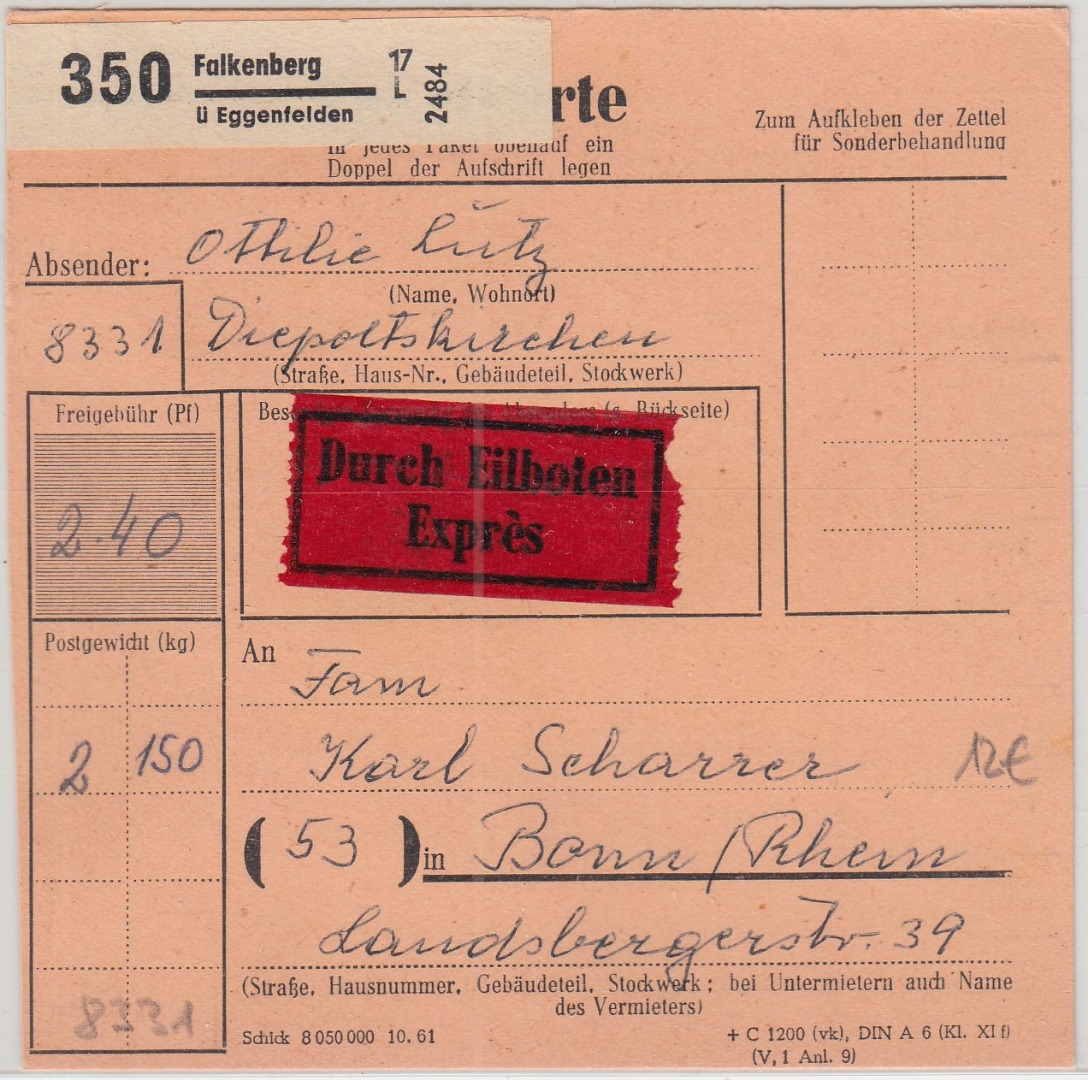 350 Falkenberg
ü Eggenfelden
17
L
2484
rte
In jedes Paket obenauf ein
Doppel der Aufschrift legen
Zum Aufkleben der Zettel
für Sonderbehandlung
Absender: Ottilie Lutz
(Name, Wohnort)
8331 Diepoltskirchen
(Straße, Haus-Nr., Gebäudeteil, Stockwerk)
Freigebühr (Pf)
2.40
Bes (s. Rückseite)
Durch Eilboten
Exprès
Postgewicht (kg)
2 150
An Fam
Karl Scharrer 12€
(53) in Bonn / Rhein
Landsbergerstr. 39
(Straße, Hausnummer, Gebäudeteil, Stockwerk; bei Untermietern auch Name
des Vermieters)
8331
Schick 8 050 000 10. 61
+ C 1200 (vk), DIN A 6 (Kl. XI f)
(V, 1 Anl. 9)